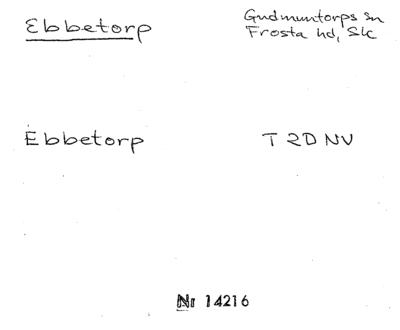 Ebbetorp
Gudmuntorps sn
Frosta hd, Sk
Ebbetorp
T 2D NV
Nr 14216